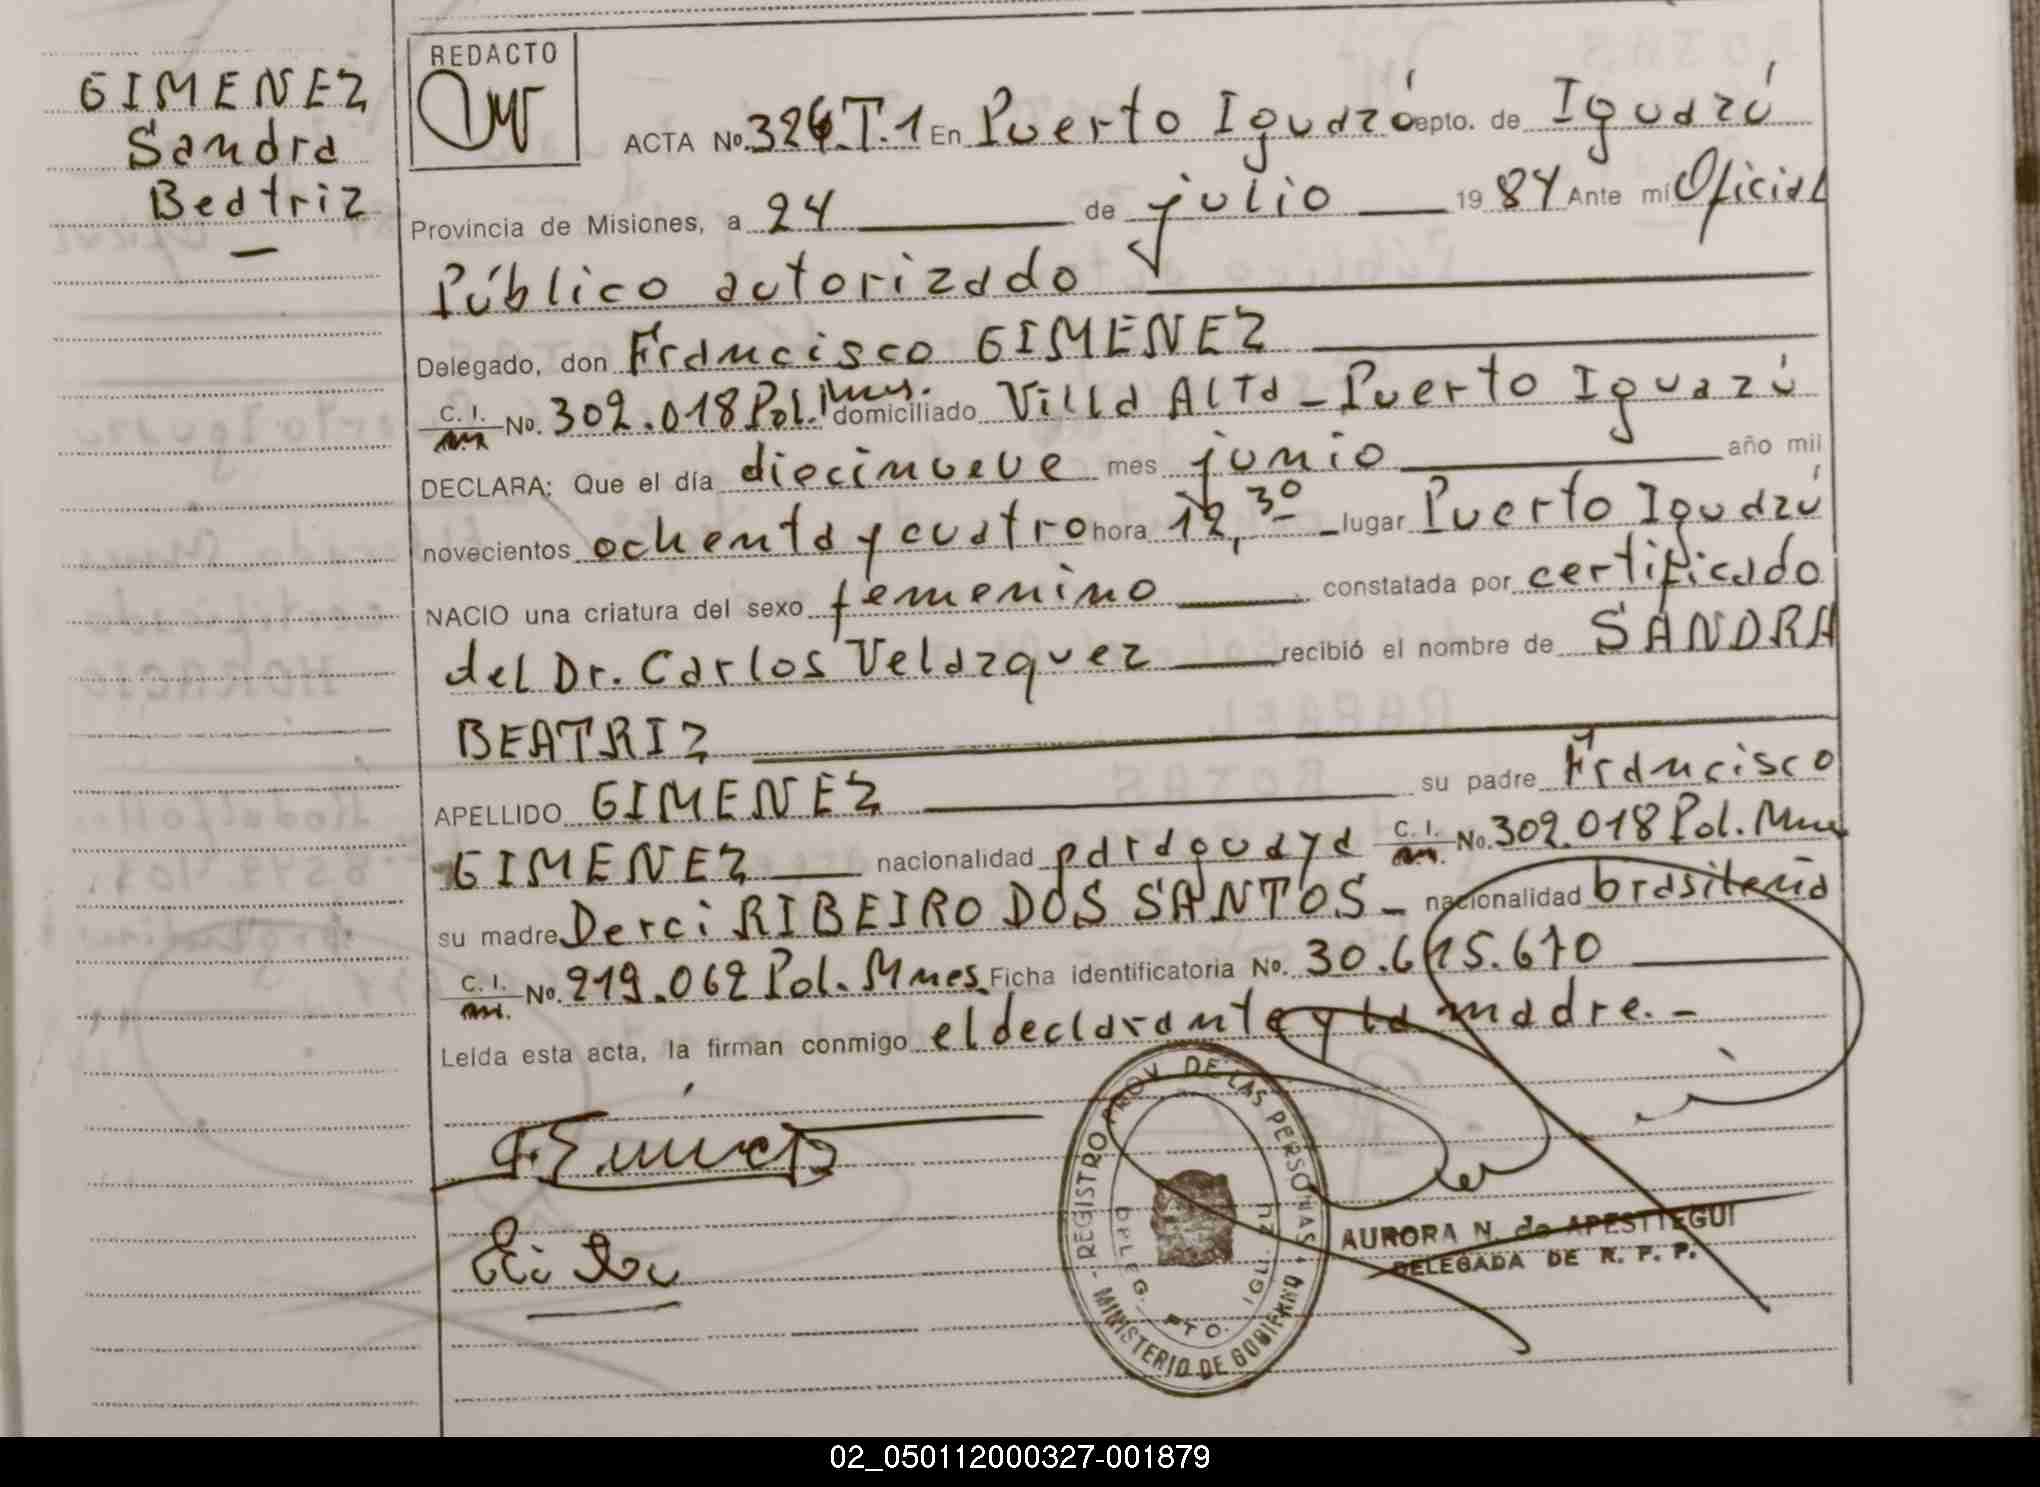 GIMENEZ
Sandra
Beatriz
—
REDACTO
ACTA No. 326 T.1 En Puerto Iguazú epto. de Iguazú
Provincia de Misiones, a 24 de julio 1984 Ante mí Oficial
Público autorizado
Delegado, don Francisco GIMENEZ
C. I. No. 302.018 Pol. Mnes. domiciliado Villa Alta - Puerto Iguazú
DECLARA: Que el día diecinueve mes junio año mil
novecientos ochenta y cuatro hora 12,30 - lugar Puerto Iguazú
NACIO una criatura del sexo femenino constatada por certificado
del Dr. Carlos Velazquez recibió el nombre de SANDRA
BEATRIZ
APELLIDO GIMENEZ su padre Francisco
GIMENEZ nacionalidad paraguaya C. I. No. 302.018 Pol. Mnes
su madre Derci RIBEIRO DOS SANTOS - nacionalidad brasileña
C. I. No. 219.062 Pol. Mnes. Ficha identificatoria No. 30.615.670
Leída esta acta, la firman conmigo el declarante y la madre. -
REGISTRO PROV. DE LAS PERSONAS
- MINISTERIO DE GOBIERNO
DELEG. PTO. IGUAZU
AURORA N. de APESTTEGUI
DELEGADA DE R. P. P.
02_050112000327-001879